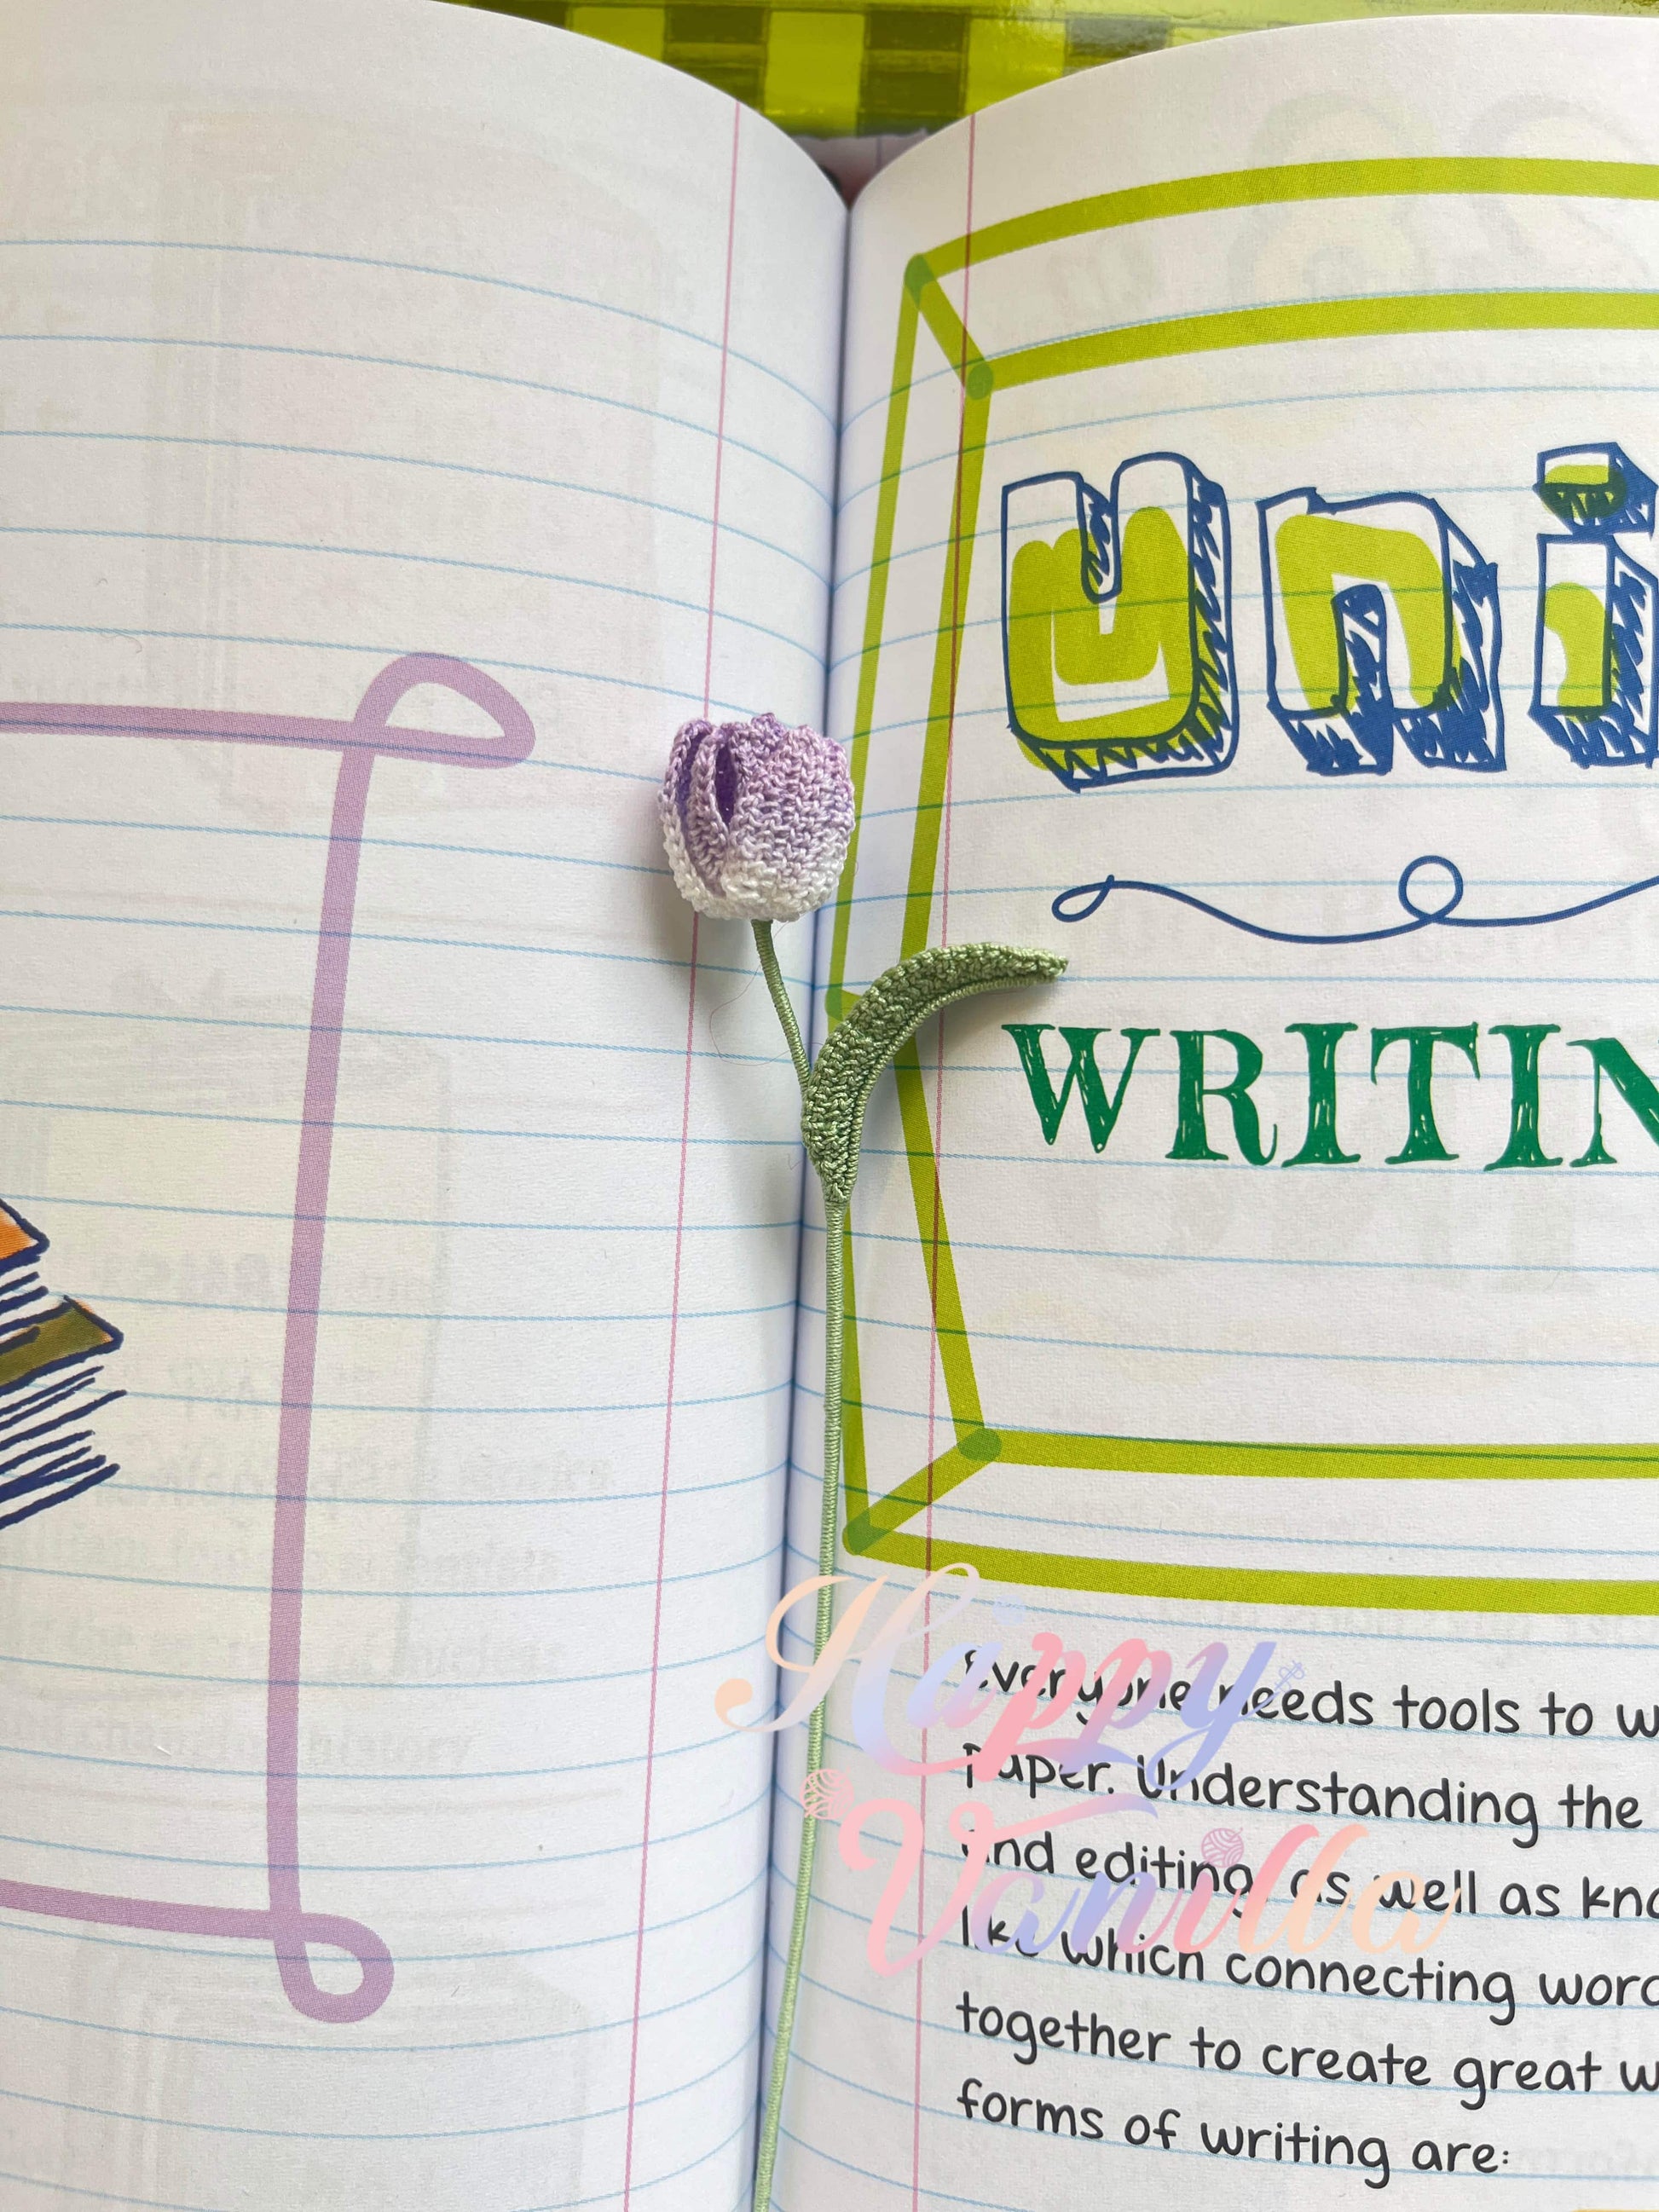 Uni
WRITIN
Everyone needs tools to w
Paper. Understanding the
and editing, as well as kno
like which connecting word
together to create great w
forms of writing are:
Happy
Vanilla